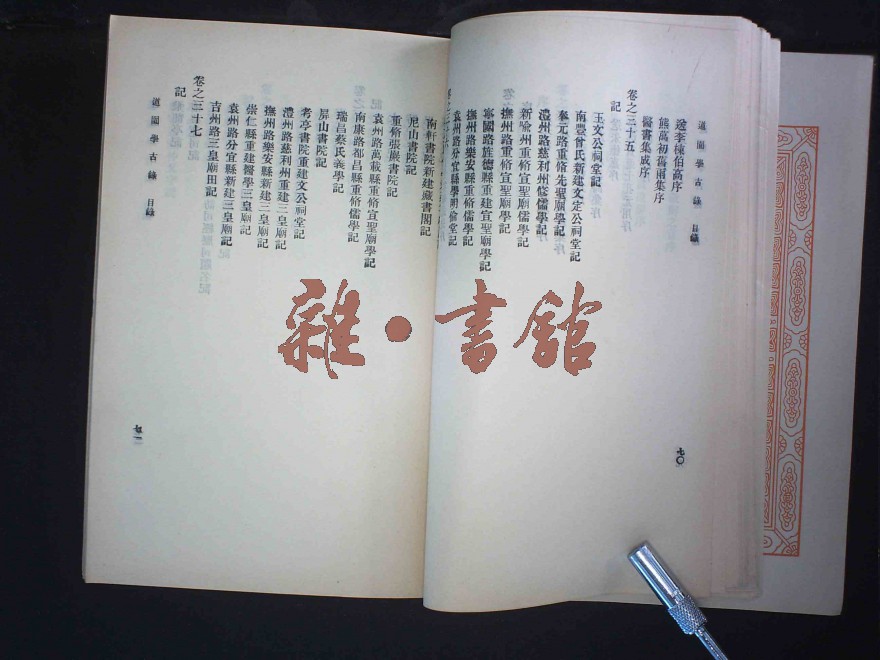 道園學古錄 目錄
送李棟伯高序
熊萬初舊雨集序
醫書集成序
卷之三十五
記
玉文公祠堂記
南豐曾氏新建文定公祠堂記
奉元路重脩先聖廟學記
澧州路慈利州脩儒學記
新喻州重脩宣聖廟學記
撫州路重脩宣聖廟學記
寧國路旌德縣重建宣聖廟學記
撫州路樂安縣重脩儒學記
袁州路分宜縣學明倫堂記
七〇
南軒書院新建藏書閣記
尼山書院記
重脩張巖書院記
袁州路萬載縣重脩宣聖廟學記
南康路都昌縣重脩儒學記
瑞昌蔡氏義學記
屏山書院記
考亭書院重建文公祠堂記
澧州路慈利州重建三皇廟記
撫州路樂安縣新建三皇廟記
崇仁縣重建醫學三皇廟記
袁州路分宜縣新建三皇廟記
吉州路三皇廟田記
卷之三十七
記
道園學古錄 目錄
七一
雜·書館